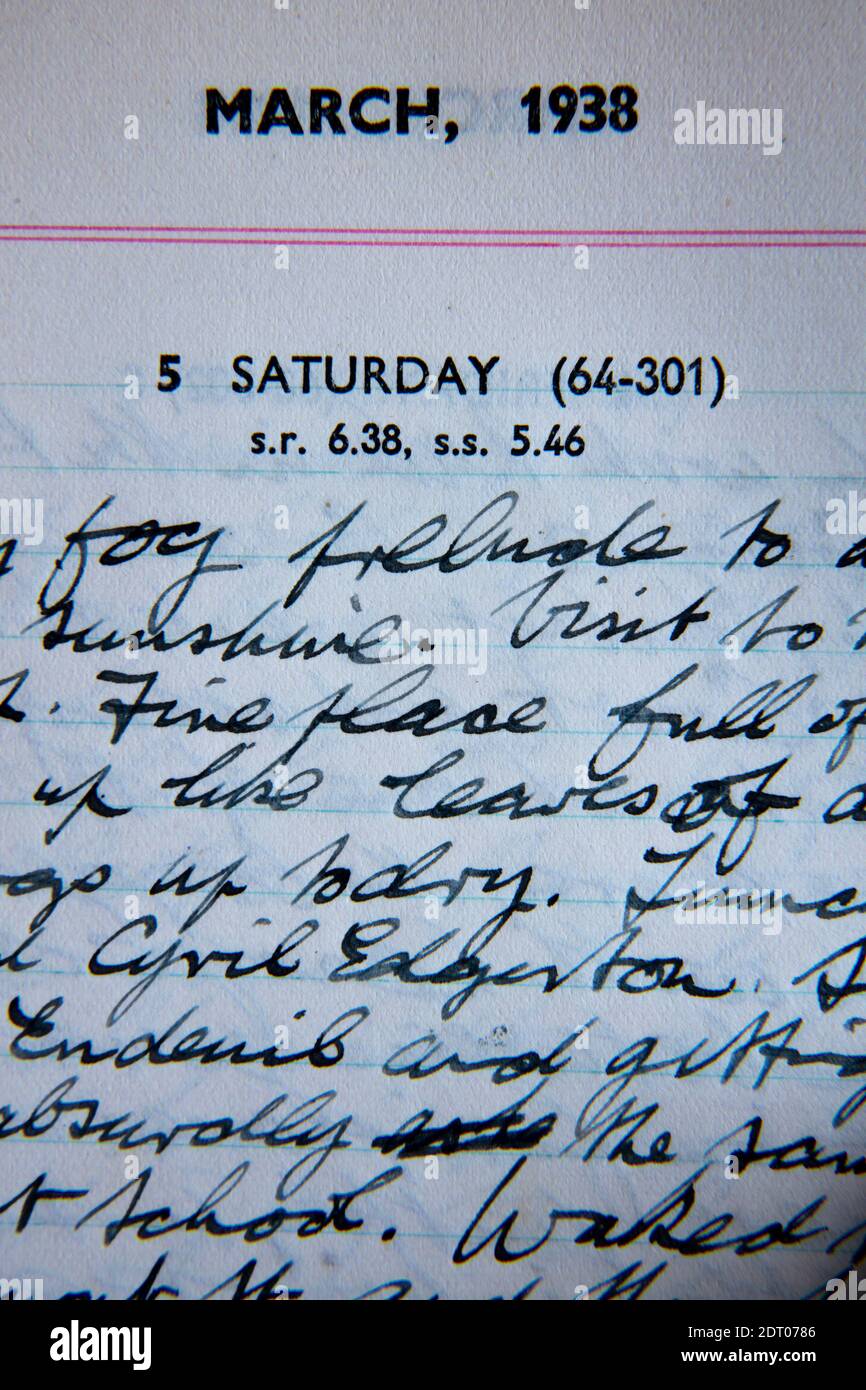 MARCH, 1938
5 SATURDAY (64-301)
s.r. 6.38, s.s. 5.46
fog prelude to a
sunshine. Visit to
Fine place full of
up like leaves of a
up to dry.
Cyril Edgerton.
and getting
absurdly the sam
t school. Waked
alamy
Image ID: 2DT0786
www.alamy.com